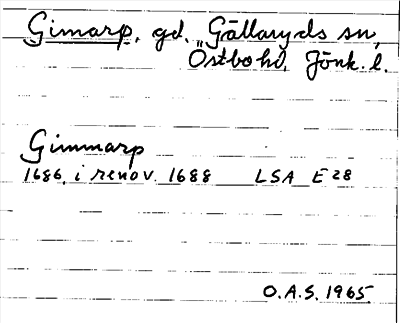 Gimarp, gd, Gällaryds sn,
Östbo hd, Jönk. l.
Gimmarp
1686, i renov. 1688 LSA E 28
O.A.S. 1965